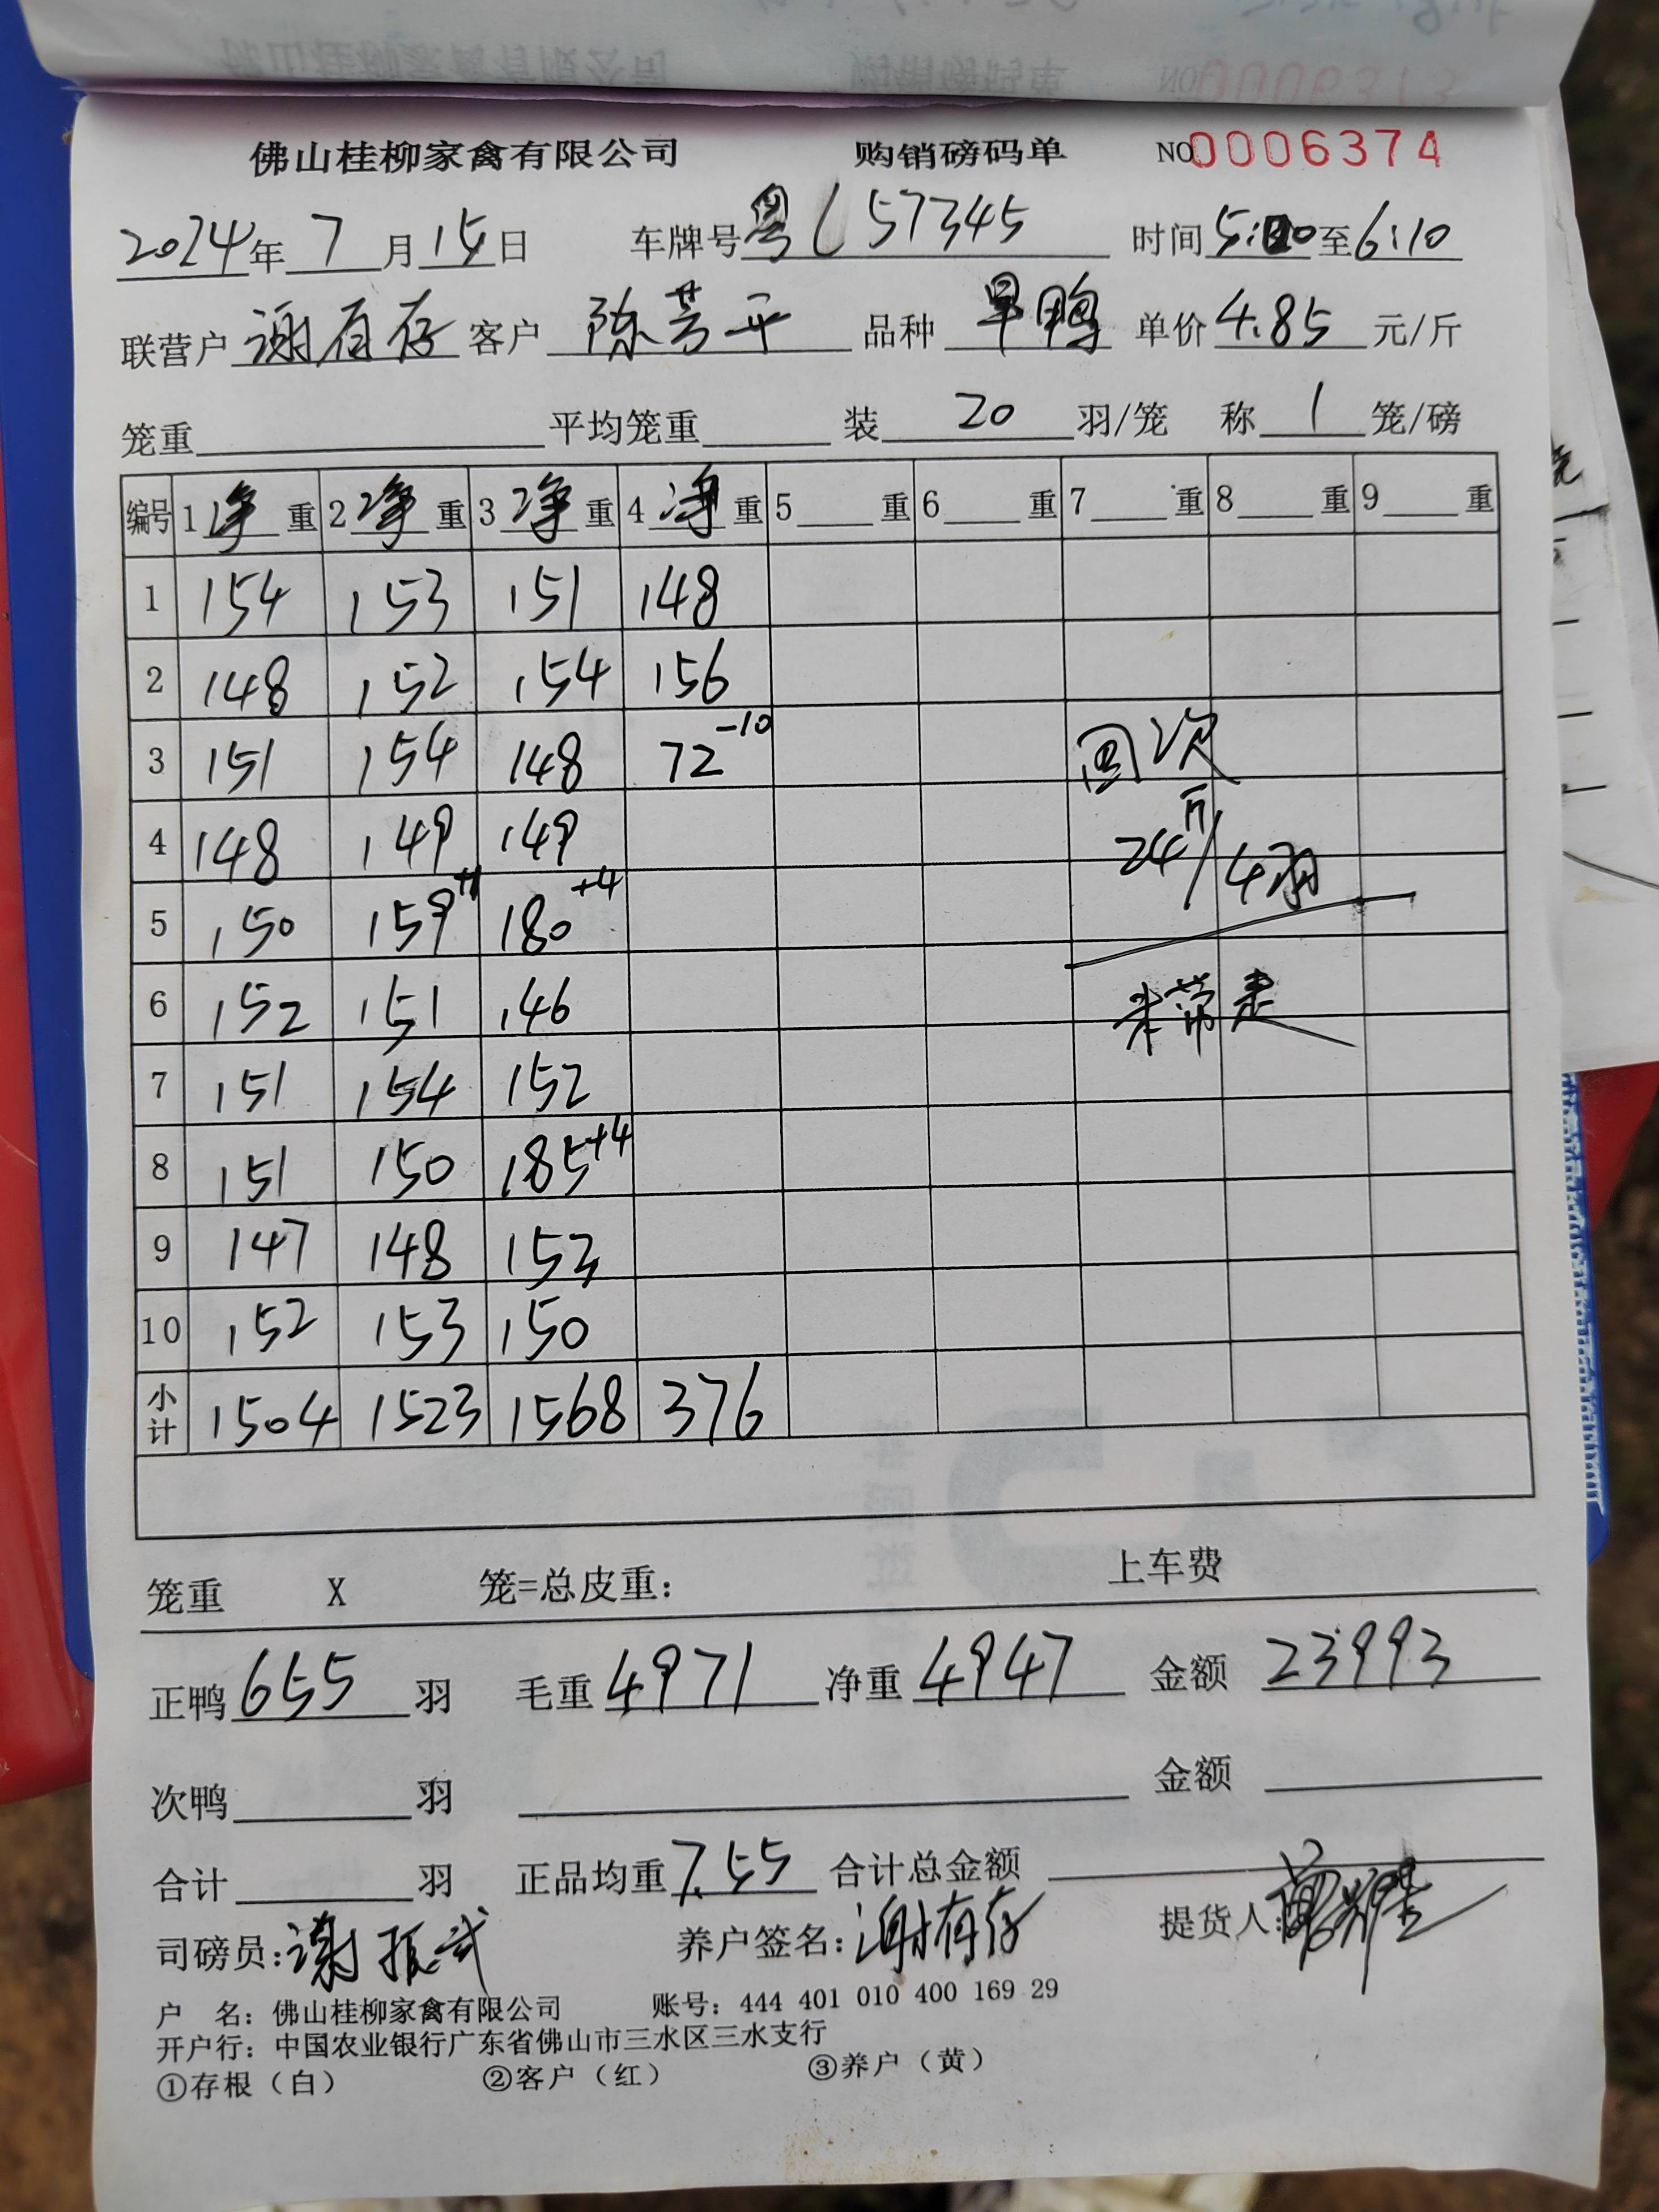 佛山桂柳家禽有限公司 购销磅码单 NO0006374
2024年7月15日 车牌号粤L57345 时间5:00至6:10
联营户谢有存 客户陈芳平 品种旱鸭 单价4.85元/斤
笼重 平均笼重 装20羽/笼 称1笼/磅
编号 1净重 2净重 3净重 4净重 5重 6重 7重 8重 9重
1 154 153 151 148
2 148 152 154 156
3 151 154 148 72-10 回次
4 148 149 149 24斤/4羽
5 150 159+1 180+4
6 152 151 146 未带走
7 151 154 152
8 151 150 185+4
9 147 148 153
10 152 153 150
小计 1504 1523 1568 376
笼重 X 笼=总皮重: 上车费
正鸭655羽 毛重4971 净重4947 金额23993
次鸭 羽 金额
合计 羽 正品均重7.55 合计总金额
司磅员:谢振武 养户签名:谢有存 提货人:
户 名:佛山桂柳家禽有限公司 账号:444 401 010 400 169 29
开户行:中国农业银行广东省佛山市三水区三水支行
①存根(白) ②客户(红) ③养户(黄)